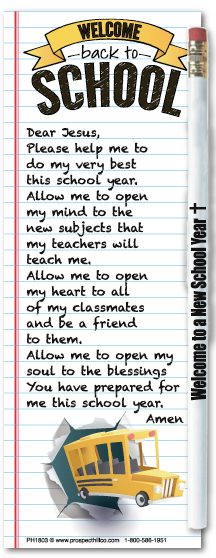 WELCOME
back to
SCHOOL
Dear Jesus,
Please help me to
do my very best
this school year.
Allow me to open
my mind to the
new subjects that
my teachers will
teach me.
Allow me to open
my heart to all
of my classmates
and be a friend
to them.
Allow me to open my
soul to the blessings
You have prepared for
me this school year.
Amen
PH1803 © www.prospecthillco.com 1-800-586-1951
Welcome to a New School Year †